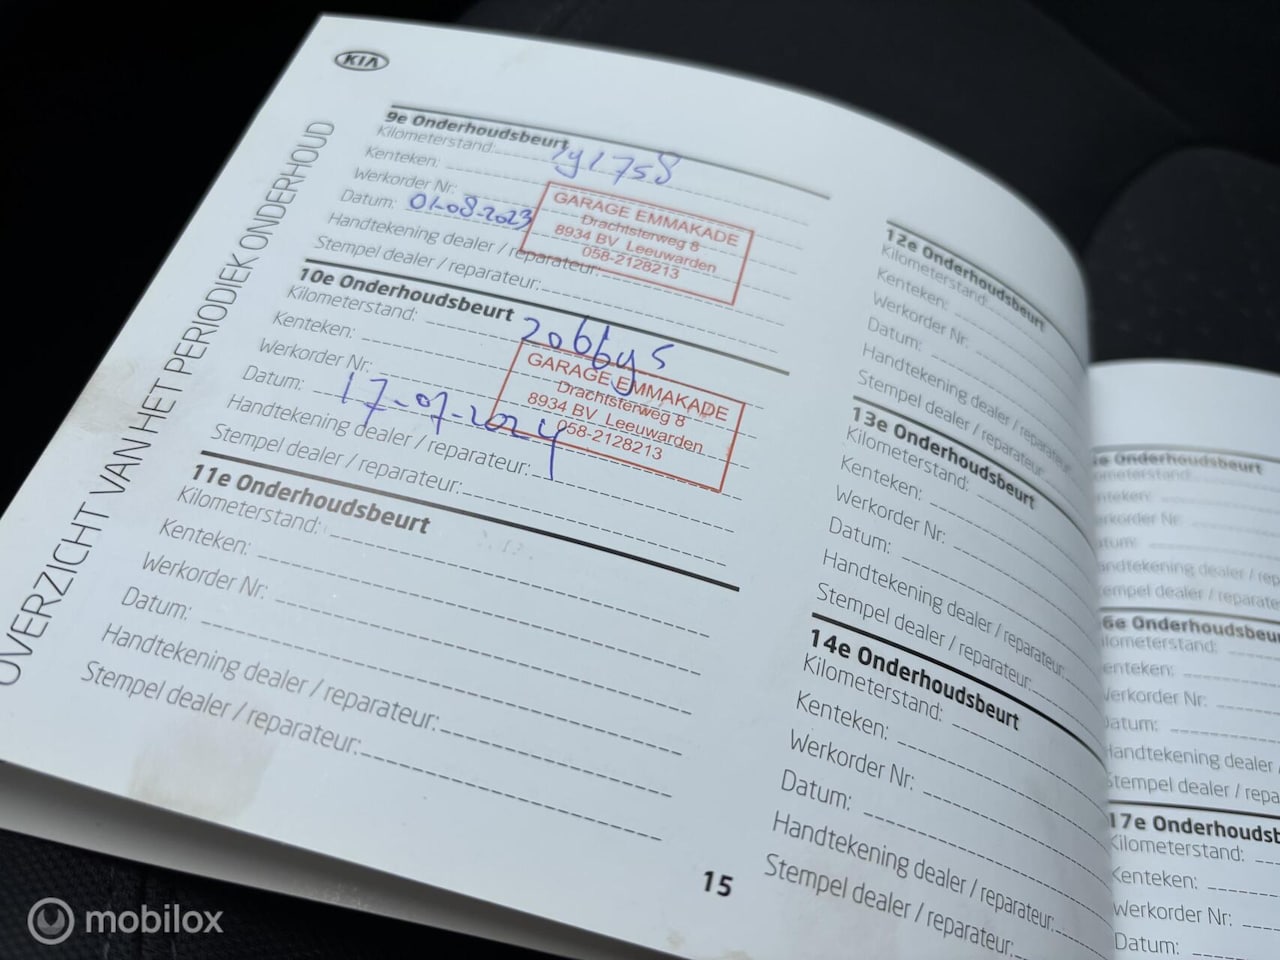 KIA
OVERZICHT VAN HET PERIODIEK ONDERHOUD
9e Onderhoudsbeurt
Kilometerstand:
Kenteken:
Werkorder Nr:
Datum: 01-08-2023
Handtekening dealer / reparateur:
Stempel dealer / reparateur:
GARAGE EMMAKADE
Drachtsterweg 8
8934 BV Leeuwarden
058-2128213
10e Onderhoudsbeurt
Kilometerstand:
Kenteken:
Werkorder Nr:
Datum: 17-07-2024
Handtekening dealer / reparateur:
Stempel dealer / reparateur:
GARAGE EMMAKADE
Drachtsterweg 8
8934 BV Leeuwarden
058-2128213
11e Onderhoudsbeurt
Kilometerstand:
Kenteken:
Werkorder Nr:
Datum:
Handtekening dealer / reparateur:
Stempel dealer / reparateur:
15
12e Onderhoudsbeurt
Kilometerstand:
Kenteken:
Werkorder Nr:
Datum:
Handtekening dealer / reparateur:
Stempel dealer / reparateur:
13e Onderhoudsbeurt
Kilometerstand:
Kenteken:
Werkorder Nr:
Datum:
Handtekening dealer / reparateur:
Stempel dealer / reparateur:
14e Onderhoudsbeurt
Kilometerstand:
Kenteken:
Werkorder Nr:
Datum:
Handtekening dealer / reparateur:
Stempel dealer / reparateur:
Onderhoudsbeurt
dealer / rep
dealer / reparate
6e Onderhoudsbeur
Kilometerstand:
Kenteken:
Werkorder Nr:
Datum:
Handtekening dealer /
Stempel dealer / repa
17e Onderhoudsb
Kilometerstand:
Kenteken:
Werkorder Nr:
Datum:
mobilox